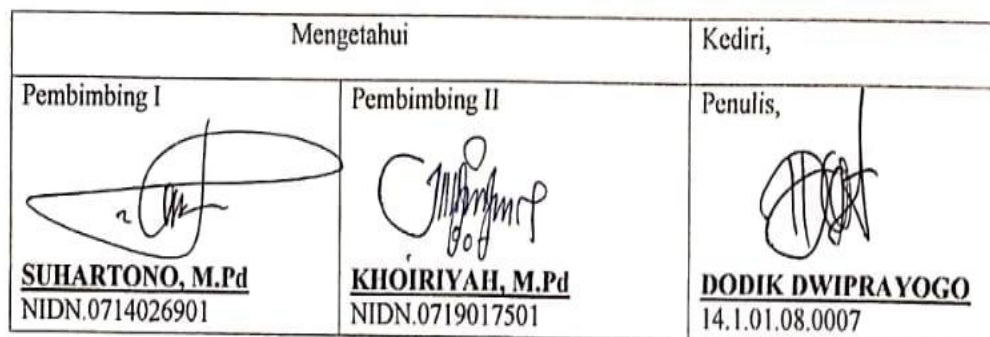 Mengetahui
Kediri,
Pembimbing I
SUHARTONO, M.Pd
NIDN.0714026901
Pembimbing II
KHOIRIYAH, M.Pd
NIDN.0719017501
Penulis,
DODIK DWIPRAYOGO
14.1.01.08.0007